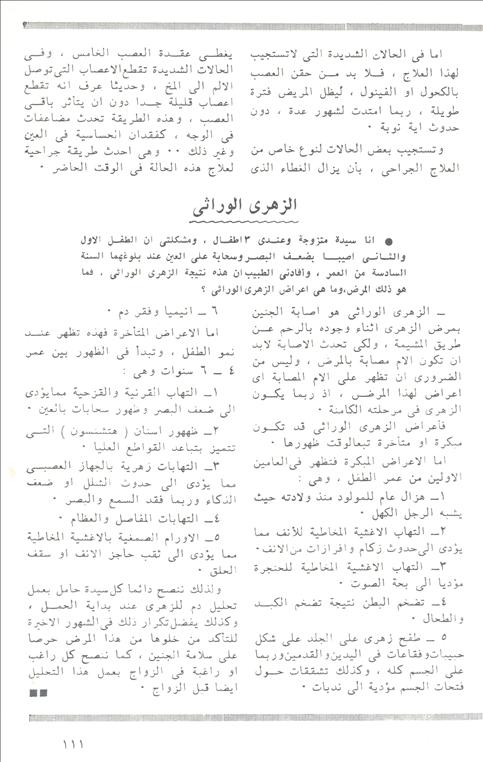 اما فى الحالات الشديدة التى لاتستجيب
لهذا العلاج ، فلا بد من حقن العصب
بالكحول او الفينول ، ليظل المريض فترة
طويلة ، ربما امتدت لشهور عدة ، دون
حدوث اية نوبة ٠
وتستجيب بعض الحالات لنوع خاص من
العلاج الجراحى ، بأن يزال الغطاء الذى
يغطى عقدة العصب الخامس ، وفى
الحالات الشديدة تقطع الاعصاب التى توصل
الالم الى المخ ، وحديثا عرف انه تقطع
اعصاب قليلة جدا دون ان يتأثر باقى
العصب ، وهذه الطريقة تحدث مضاعفات
فى الوجه ، كفقدان الحساسية فى العين
وغير ذلك ٠٠ وهى احدث طريقة جراحية
لعلاج هذه الحالة فى الوقت الحاضر ٠
الزهرى الوراثى
● انا سيدة متزوجة وعندى ٣ اطفال ، ومشكلتى ان الطفل الاول
والثانى اصيبا بضعف البصر وسحابة على العين عند بلوغهما السنة
السادسة من العمر ، وأفادنى الطبيب ان هذه نتيجة الزهرى الوراثى ، فما
هو ذلك المرض، وما هى اعراض الزهرى الوراثى ؟
ــ الزهرى الوراثى هو اصابة الجنين
بمرض الزهرى اثناء وجوده بالرحم عن
طريق المشيمة ، ولكى تحدث الاصابة لابد
ان تكون الام مصابة بالمرض ، وليس من
الضرورى ان تظهر على الام المصابة اى
اعراض لهذا المرض ، اذ ربما يكون
الزهرى فى مرحلته الكامنة ٠
فأعراض الزهرى الوراثى قد تكون
مبكرة او متأخرة تبعا لوقت ظهورها ٠
اما الاعراض المبكرة فتظهر فى العامين
الاولين من عمر الطفل ، وهى :
١ــ هزال عام للمولود منذ ولادته حيث
يشبه الرجل الكهل ٠
٢ــ التهاب الاغشية المخاطية للأنف مما
يؤدى الى حدوث زكام وافرازات من الانف ٠
٣ــ التهاب الاغشية المخاطية للحنجرة
مؤديا الى بحة الصوت ٠
٤ــ تضخم البطن نتيجة تضخم الكبد
والطحال ٠
٥ ــ طفح زهرى على الجلد على شكل
حبيبات وفقاعات فى اليدين والقدمين وربما
على الجسم كله ، وكذلك تشققات حول
فتحات الجسم مؤدية الى ندبات ٠
٦ ــ انيميا وفقر دم ٠
اما الاعراض المتأخرة فهذه تظهر عند
نمو الطفل ، وتبدأ فى الظهور بين عمر
٤ ــ ٦ سنوات وهى :
١ــ التهاب القرنية والقزحية مما يؤدى
الى ضعف البصر وظهور سحابات بالعين ٠
٢ــ ظهور اسنان ( هتشنسون ) التى
تتميز بتباعد القواطع العليا ٠
٣ــ التهابات زهرية بالجهاز العصبى
مما يؤدى الى حدوث الشلل او ضعف
الذكاء وربما فقد السمع والبصر ٠
٤ــ التهابات المفاصل والعظام ٠
٥ــ الاورام الصمغية بالاغشية المخاطية
مما يؤدى الى ثقب حاجز الانف او سقف
الحلق ٠
ولذلك ننصح دائما كل سيدة حامل بعمل
تحليل دم للزهرى عند بداية الحمل ،
وكذلك يفضل تكرار ذلك فى الشهور الاخيرة
للتأكد من خلوها من هذا المرض حرصا
على سلامة الجنين ، كما ننصح كل راغب
او راغبة فى الزواج بعمل هذا التحليل
ايضا قبل الزواج ٠
١١١